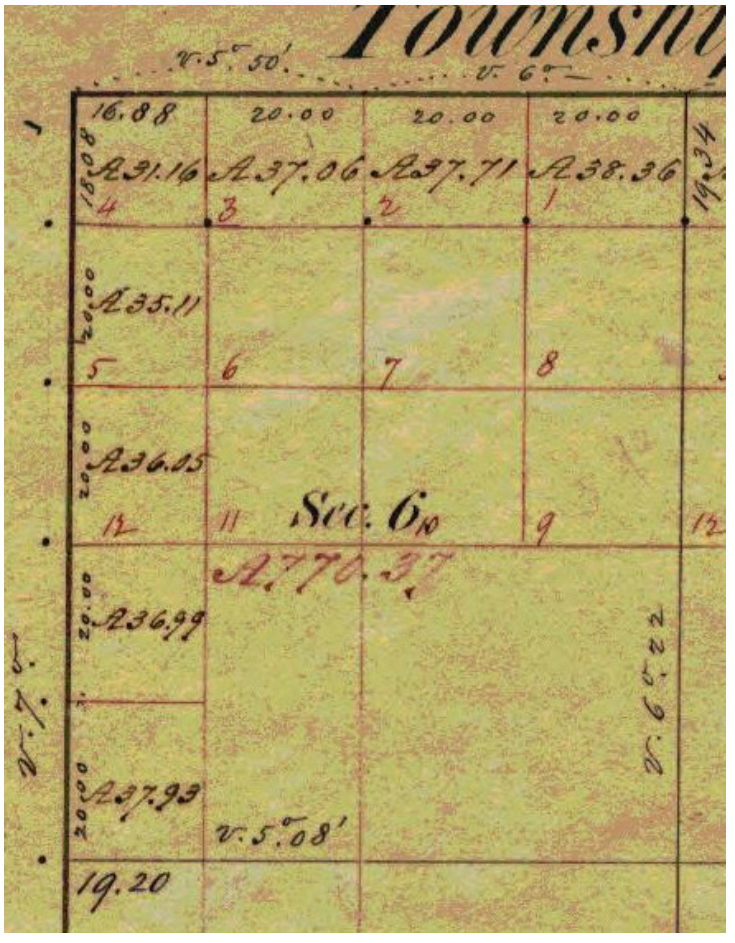 Township
v. 5° 50'
v. 6°
16.88 20.00 20.00 20.00
18.08 A31.16 A37.06 A37.71 A38.36 19.34
4 3 2 1
20.00 A35.11
5 6 7 8
20.00 A36.05
12 11 Sec. 6 10 9 12
A770.37
20.00 A36.99
v. 7°
v. 6° 22
20.00 A37.93
v. 5° 08'
19.20